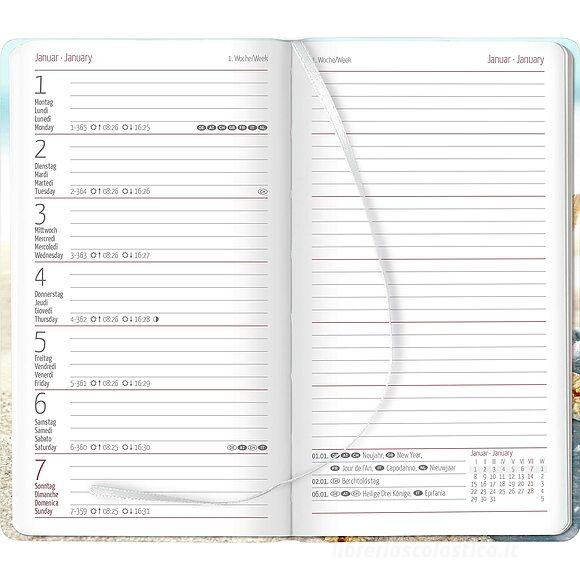 Januar · January 1. Woche/Week
1
Montag
Lundi
Lunedì
Monday 1-365 08:26 16:25 DE AT CH GB FR IT NL
2
Dienstag
Mardi
Martedì
Tuesday 2-364 08:26 16:26 CH
3
Mittwoch
Mercredi
Mercoledì
Wednesday 3-363 08:26 16:27
4
Donnerstag
Jeudi
Giovedì
Thursday 4-362 08:26 16:28
5
Freitag
Vendredi
Venerdì
Friday 5-361 08:26 16:29
6
Samstag
Samedi
Sabato
Saturday 6-360 08:25 16:30 DE AT CH IT
7
Sonntag
Dimanche
Domenica
Sunday 7-359 08:25 16:31
1. Woche/Week Januar · January
01.01. DE AT CH Neujahr, GB New Year,
FR Jour de l'An, IT Capodanno, NL Nieuwjaar
02.01. CH Berchtoldstag
06.01. DE AT CH Heilige Drei Könige, IT Epifania
Januar · January
I II III IV V VI VII W
1 2 3 4 5 6 7 1
8 9 10 11 12 13 14 2
15 16 17 18 19 20 21 3
22 23 24 25 26 27 28 4
29 30 31 5
libreriascolastica.it